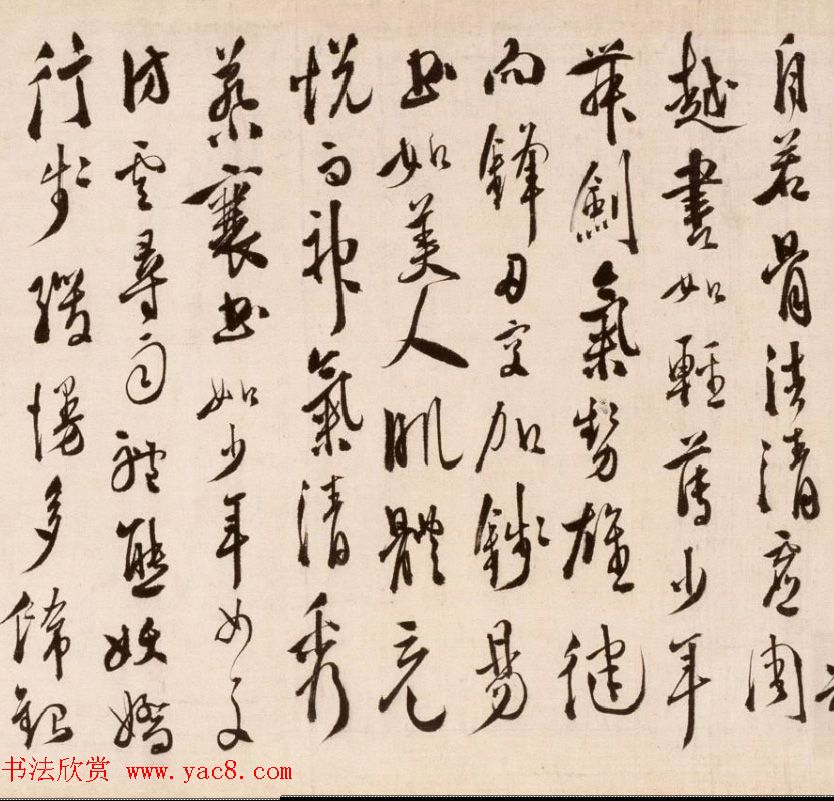 自若骨法清虛周
越書如輕薄少年
舞劍氣勢雄健
而鋒刃交加錢易
書如美人肌體充
悅而神氣清秀
蔡襄書如少年女子
訪雲尋雨體態妖嬌
行步緩慢多飾鉛
书法欣赏 www.yac8.com